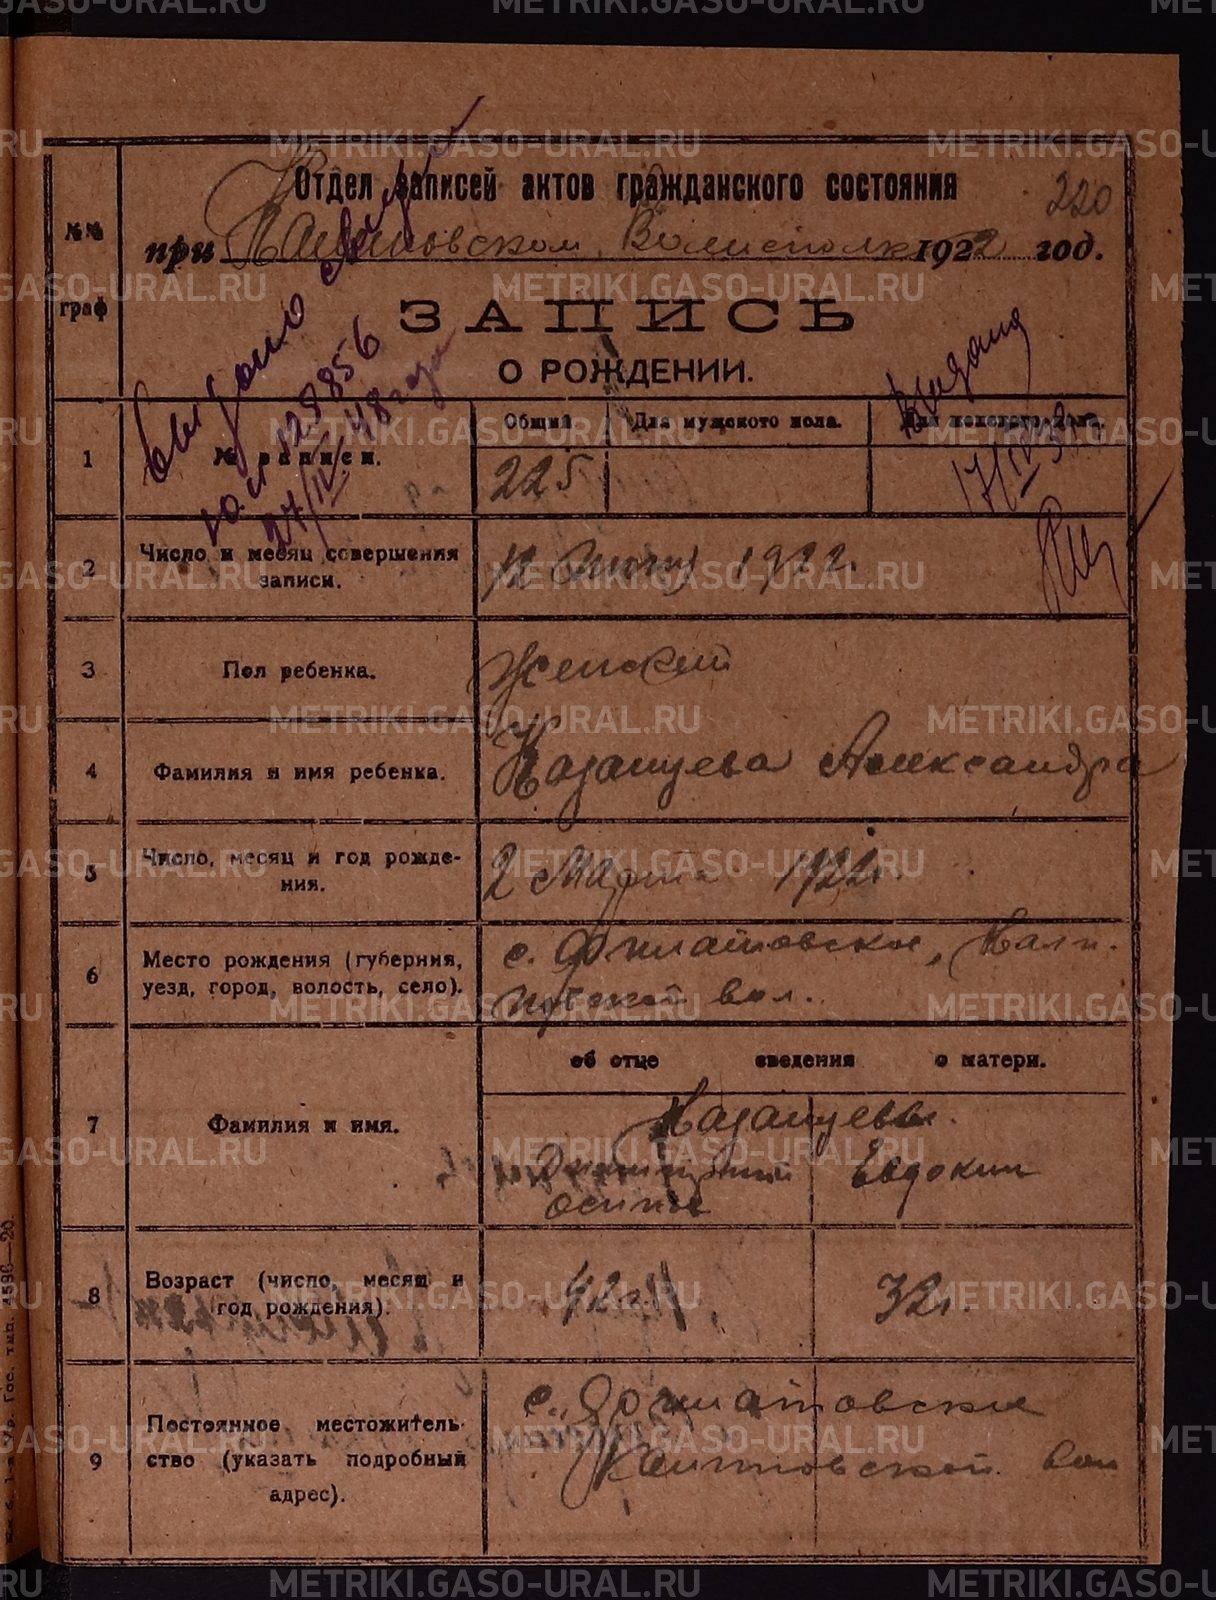 220
Отдел записей актов гражданского состояния
при Калиновском Волисполк 1922 год.
№№ граф
ЗАПИСЬ
О РОЖДЕНИИ.
Выдано свид
юл 028856
27/IV-48 года
Выдана
17/IV
1
№ записи.
Общий
Для мужского пола.
Для женского пола.
225
2
Число и месяц совершения
записи.
12 1922г.
3
Пол ребенка.
Женский
4
Фамилия и имя ребенка.
Казанцева Александра
5
Число, месяц и год рожде-
ния.
2 Марта 1922г.
6
Место рождения (губерния,
уезд, город, волость, село).
с. Филатовское, Кали-
новской вол.
об отце сведения о матери.
7
Фамилия и имя.
Казанцевы.
Осипов
Евдокия
8
Возраст (число, месяц и
год рождения).
42 г.
32 г.
9
Постоянное местожитель-
ство (указать подробный
адрес).
с. Филатовское
Калиновской вол
Гос. тип. 1596—20.
METRIKI.GASO-URAL.RU